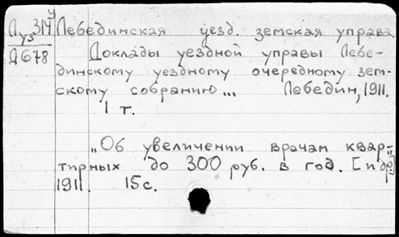 у
Л 314 Лебединская уезд. земская управа.
уз
Д 678 Доклады уездной управы Лебе-
динскому уездному очередному зем-
скому собранию... Лебедин, 1911.
1 т.
„Об увеличении врачам квар-
тирных до 300 руб. в год. [и др.]
1911. 15 с.